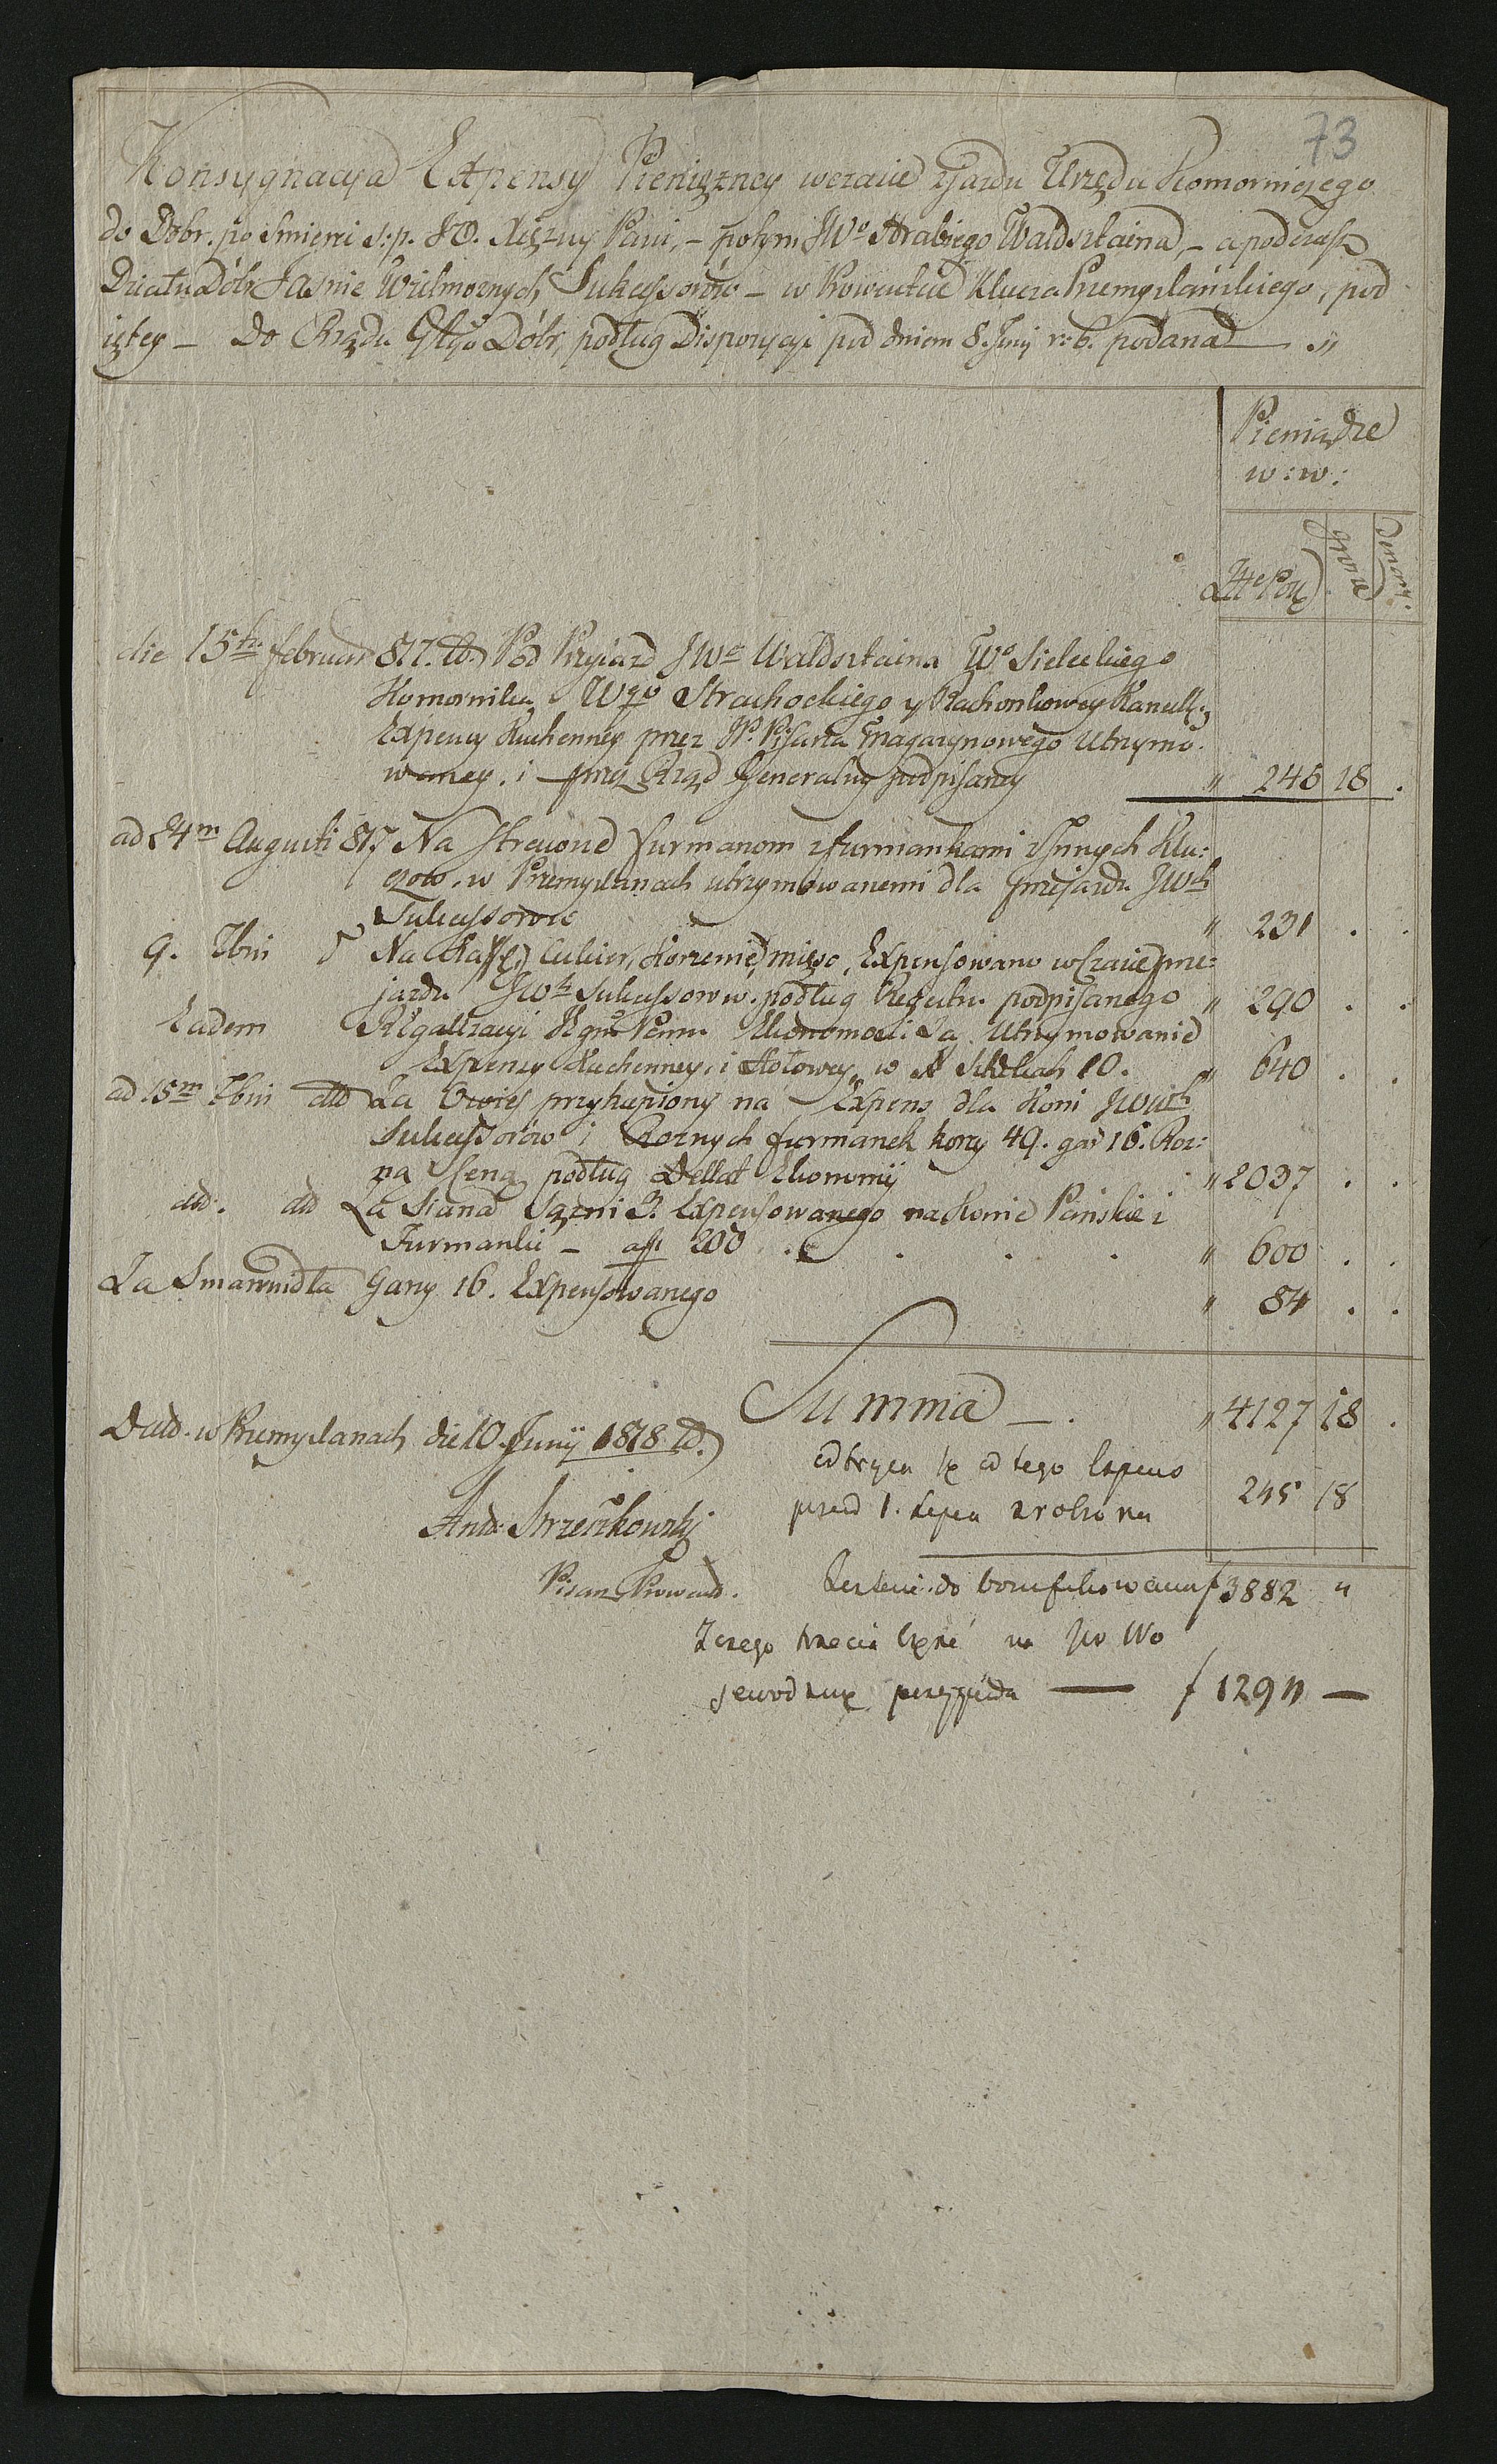 73
Konsygnacya Expensy Pieniężney wczasie zjazdu Urzędu Komorniczego
do Dobr. po Smierci s:p. JO. Xiężny Pani, – potym JWo Hrabiego Waldsztaina, – a podczas
Działu Dóbr Jasnie Wielmożnych Sukcessorów – w Prowentuie Klucza Przemyslańskiego, pod
iętey – do Rządu Dóbr, podług Dispozycyi pod dniem 8. Juny r: b. podana
Pieniądze
w: w:
Złte Pol.
grosze
Denary.
die 15ta februar 817. Pod Przyiazd JWo Waldsztaina Wo Sieleckiego
Komornika, Wgo Strachockiego y Rachonkowey Kancell.
Expensy Kuchenney przez JP. Pisarza Magazynowego Utrzymo
waney. i przez Rząd Generalny podpisaney " 245 18 .
ad 24m Augusti 817 Na Strawne furmanom z furmankami z Innych Klu:
czow. w Przemyslanach utrzymowanemi dla przejazdu JWch
Sukcessorow " 231 . .
9. 7bris Na Kaffe, Cukier, Korzenie, mięso, Expensowano wczasie prze:
jazdu JWch Sukcessorow. podług Regestru podpisanego " 290 . .
Eadem Regallzacyi Panu Ekonomowi Za Utrzymowanie
Expensy Kuchenney. i stołowey w 10. " 640 . .
ad 15m 7bris dtto Za Owies przykupiony na Expens dla Koni JWWch
Sukcessorów i Roznych furmanek korcy 49. gar 16. Roz:
na Ceną podług Dellat Ekonomij " 2037 . .
dtto. dtto Za Siana Sążni 3. Expensowanego na Konie Pańskie i
Furmanki – a f 200 . . . . " 600 . .
Za Smarowidła Garcy 16. Expensowanego " 84 . .
Summa – . " 4127 18 .
Datt. w Przemyslanach die 10. Junij 1818.
odtrąca się od tego Expens
przed 1. Lipca zrobiona 245 18
And: Strzeszkowski
Pisarz Prowent.
Resztuie do bonifikowania f 3882 "
Z czego trzecia część na JW Wo
przypada — f 1294 —